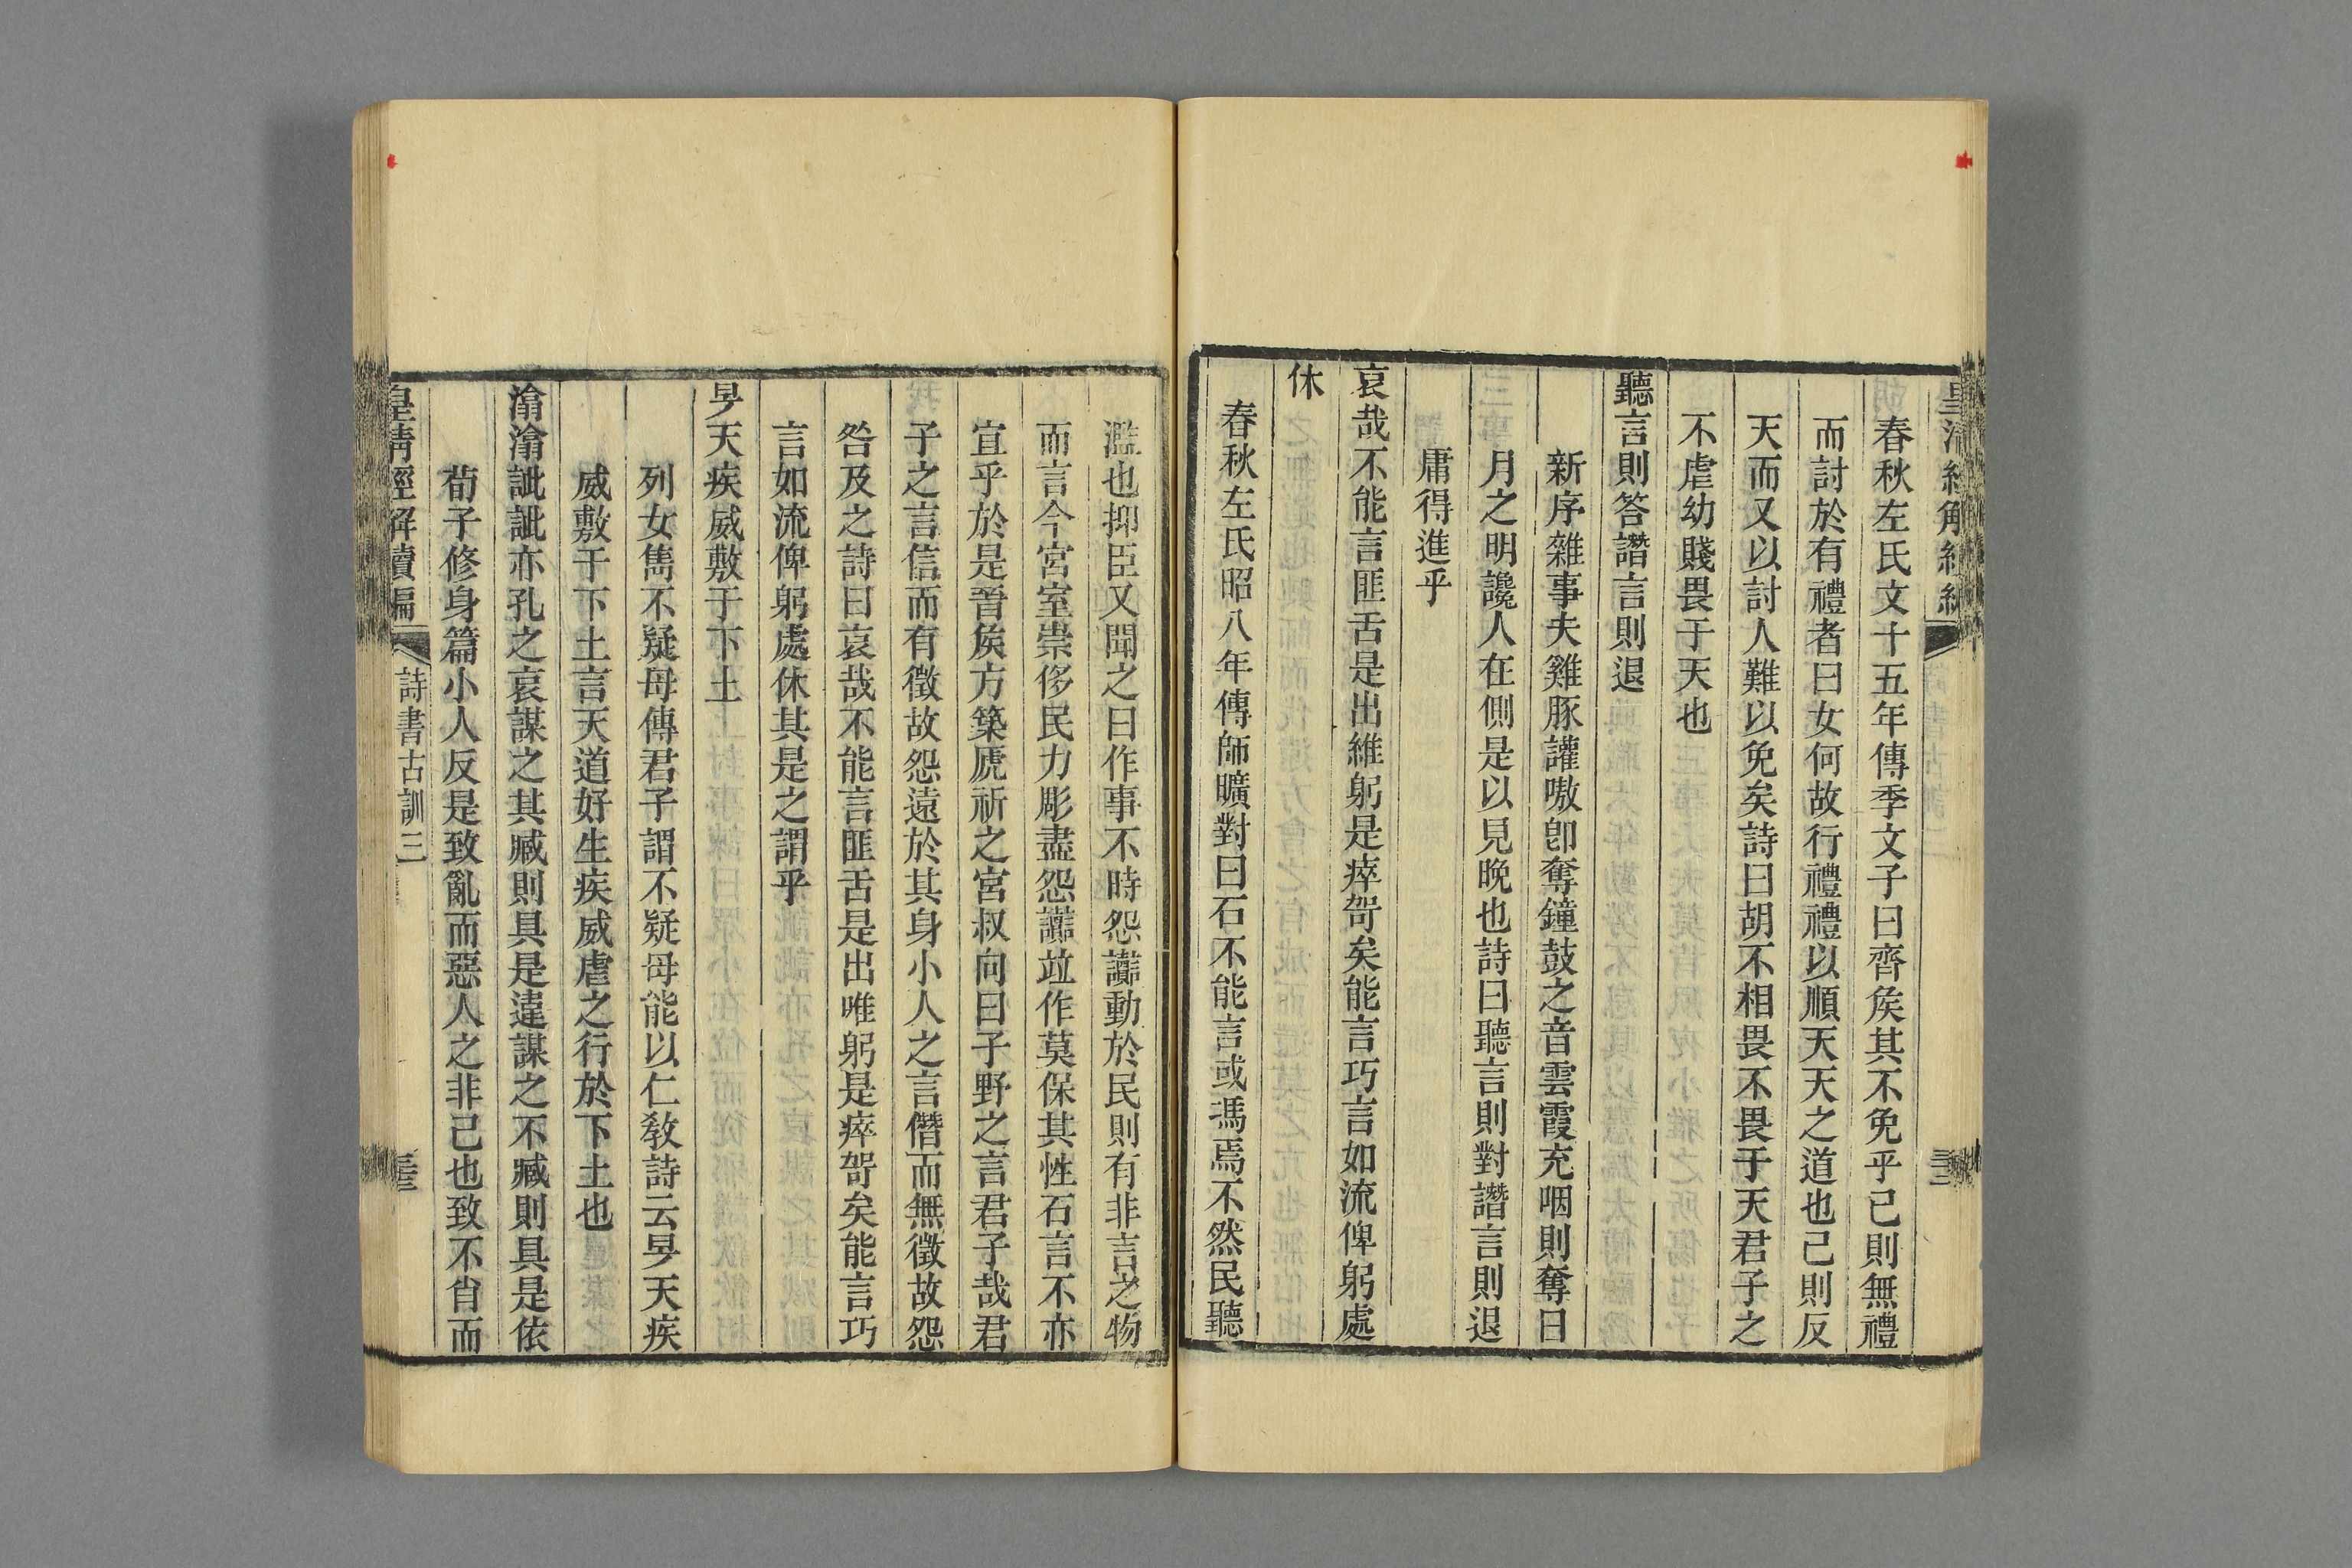 春秋左氏文十五年傳季文子曰齊矦其不免乎己則無禮
而討於有禮者曰女何故行禮禮以順天天之道也己則反
天而又以討人難以免矣詩曰胡不相畏不畏于天君子之
不虐幼賤畏于天也
聽言則答譖言則退
新序雜事夫雞豚讙嗷卽奪鐘鼓之音雲霞充咽則奪日
月之明讒人在側是以見晚也詩曰聽言則對譖言則退
庸得進乎
哀哉不能言匪舌是出維躬是瘁哿矣能言巧言如流俾躬處
休
春秋左氏昭八年傳師曠對曰石不能言或馮焉不然民聽
濫也抑臣又聞之曰作事不時怨讟動於民則有非言之物
而言今宮室崇侈民力彫盡怨讟竝作莫保其性石言不亦
宜乎於是晉矦方築虒祈之宮叔向曰子野之言君子哉君
子之言信而有徵故怨遠於其身小人之言僭而無徵故怨
咎及之詩曰哀哉不能言匪舌是出唯躬是瘁哿矣能言巧
言如流俾躬處休其是之謂乎
旻天疾威敷于下土
列女雋不疑母傳君子謂不疑母能以仁敎詩云旻天疾
威敷于下土言天道好生疾威虐之行於下土也
潝潝訿訿亦孔之哀謀之其臧則具是違謀之不臧則具是依
荀子修身篇小人反是致亂而惡人之非己也致不肖而
皇淸經解續編
詩書古訓三